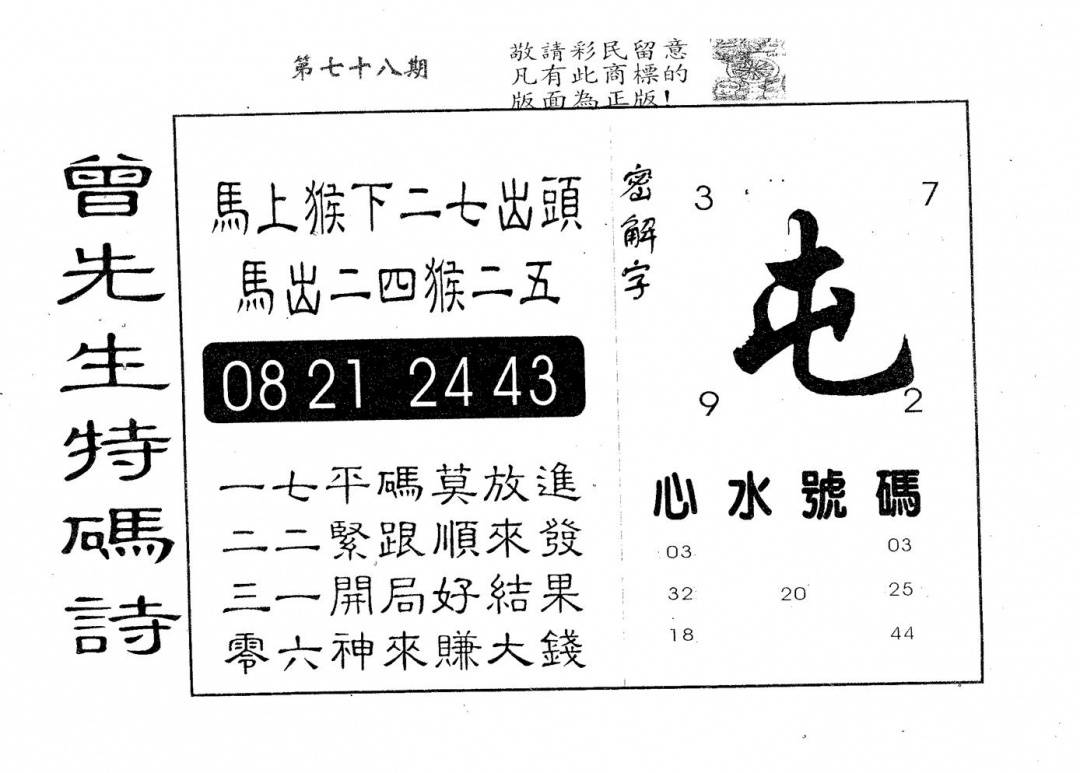 第七十八期
敬請彩民留意
凡有此商標的
版面為正版!
曾先生特碼詩
馬上猴下二七出頭
馬出二四猴二五
08 21 24 43
一七平碼莫放進
二二緊跟順來發
三一開局好結果
零六神來賺大錢
密解字
3 7
屯
9 2
心水號碼
03 03
32 20 25
18 44